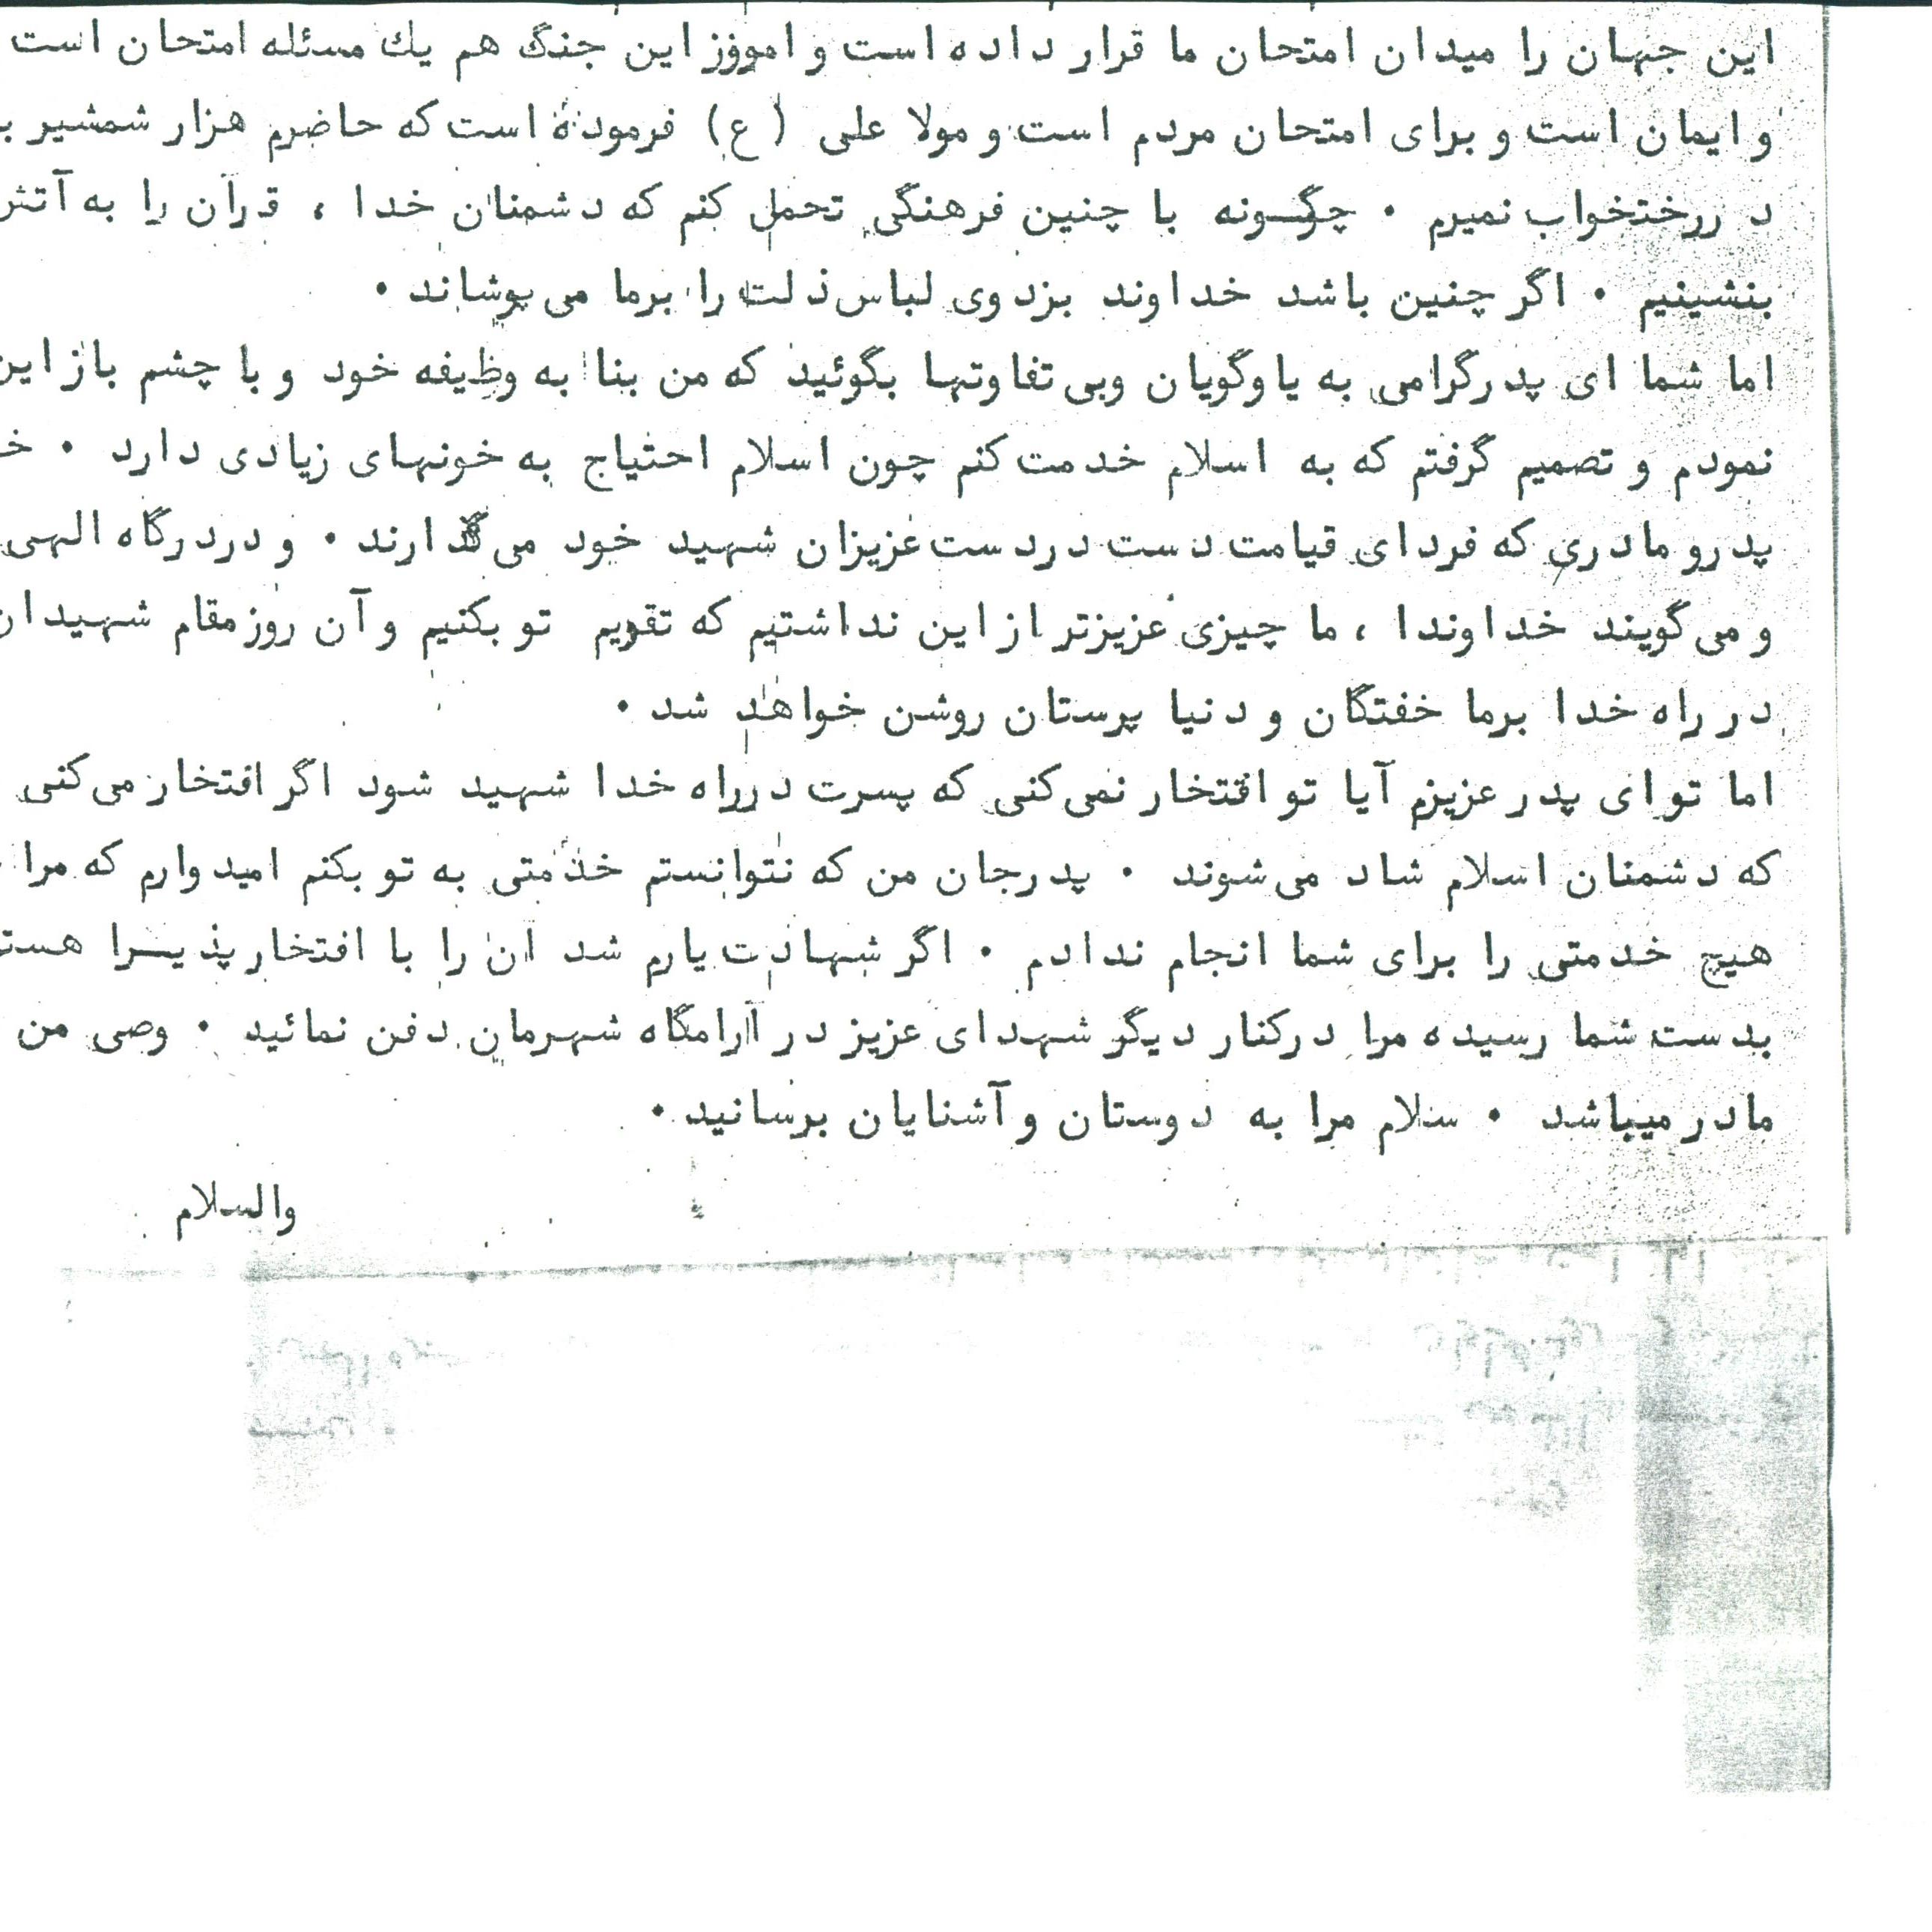 این جهان را میدان امتحان ما قرار داده است و امروز این جنگ هم یك مسئله امتحان است
و ایمان است و برای امتحان مردم است و مولا علی (ع) فرموده است که حاضرم هزار شمشیر
در رختخواب نمیرم . چگونه با چنین فرهنگی تحمل کنم که دشمنان خدا ، قرآن را به آتش
بنشینیم . اگر چنین باشد خداوند بزودی لباس ذلت را برما می پوشاند .
اما شما ای پدر گرامی به یاوگویان وبی تفاوتها بگوئید که من بنا به وظیفه خود و با چشم باز این
نمودم و تصمیم گرفتم که به اسلام خدمت کنم چون اسلام احتیاج به خونهای زیادی دارد .
پدر و مادری که فردای قیامت دست در دست عزیزان شهید خود می گذارند . و در درگاه الهی
و می گویند خداوندا ، ما چیزی عزیزتر از این نداشتیم که تقدیم تو بکنیم و آن روز مقام شهیدان
در راه خدا برما خفتگان و دنیا پرستان روشن خواهد شد .
اما تو ای پدر عزیزم آیا تو افتخار نمی کنی که پسرت در راه خدا شهید شود اگر افتخار می کنی
که دشمنان اسلام شاد می شوند . پدرجان من که نتوانستم خدمتی به تو بکنم امیدوارم که مرا
هیچ خدمتی را برای شما انجام ندادم . اگر شهادت یارم شد آن را با افتخار پذیرا
بدست شما رسیده مرا درکنار دیگر شهدای عزیز در آرامگاه شهرمان دفن نمائید . وصی من
مادر میباشد . سلام مرا به دوستان و آشنایان برسانید .
والسلام